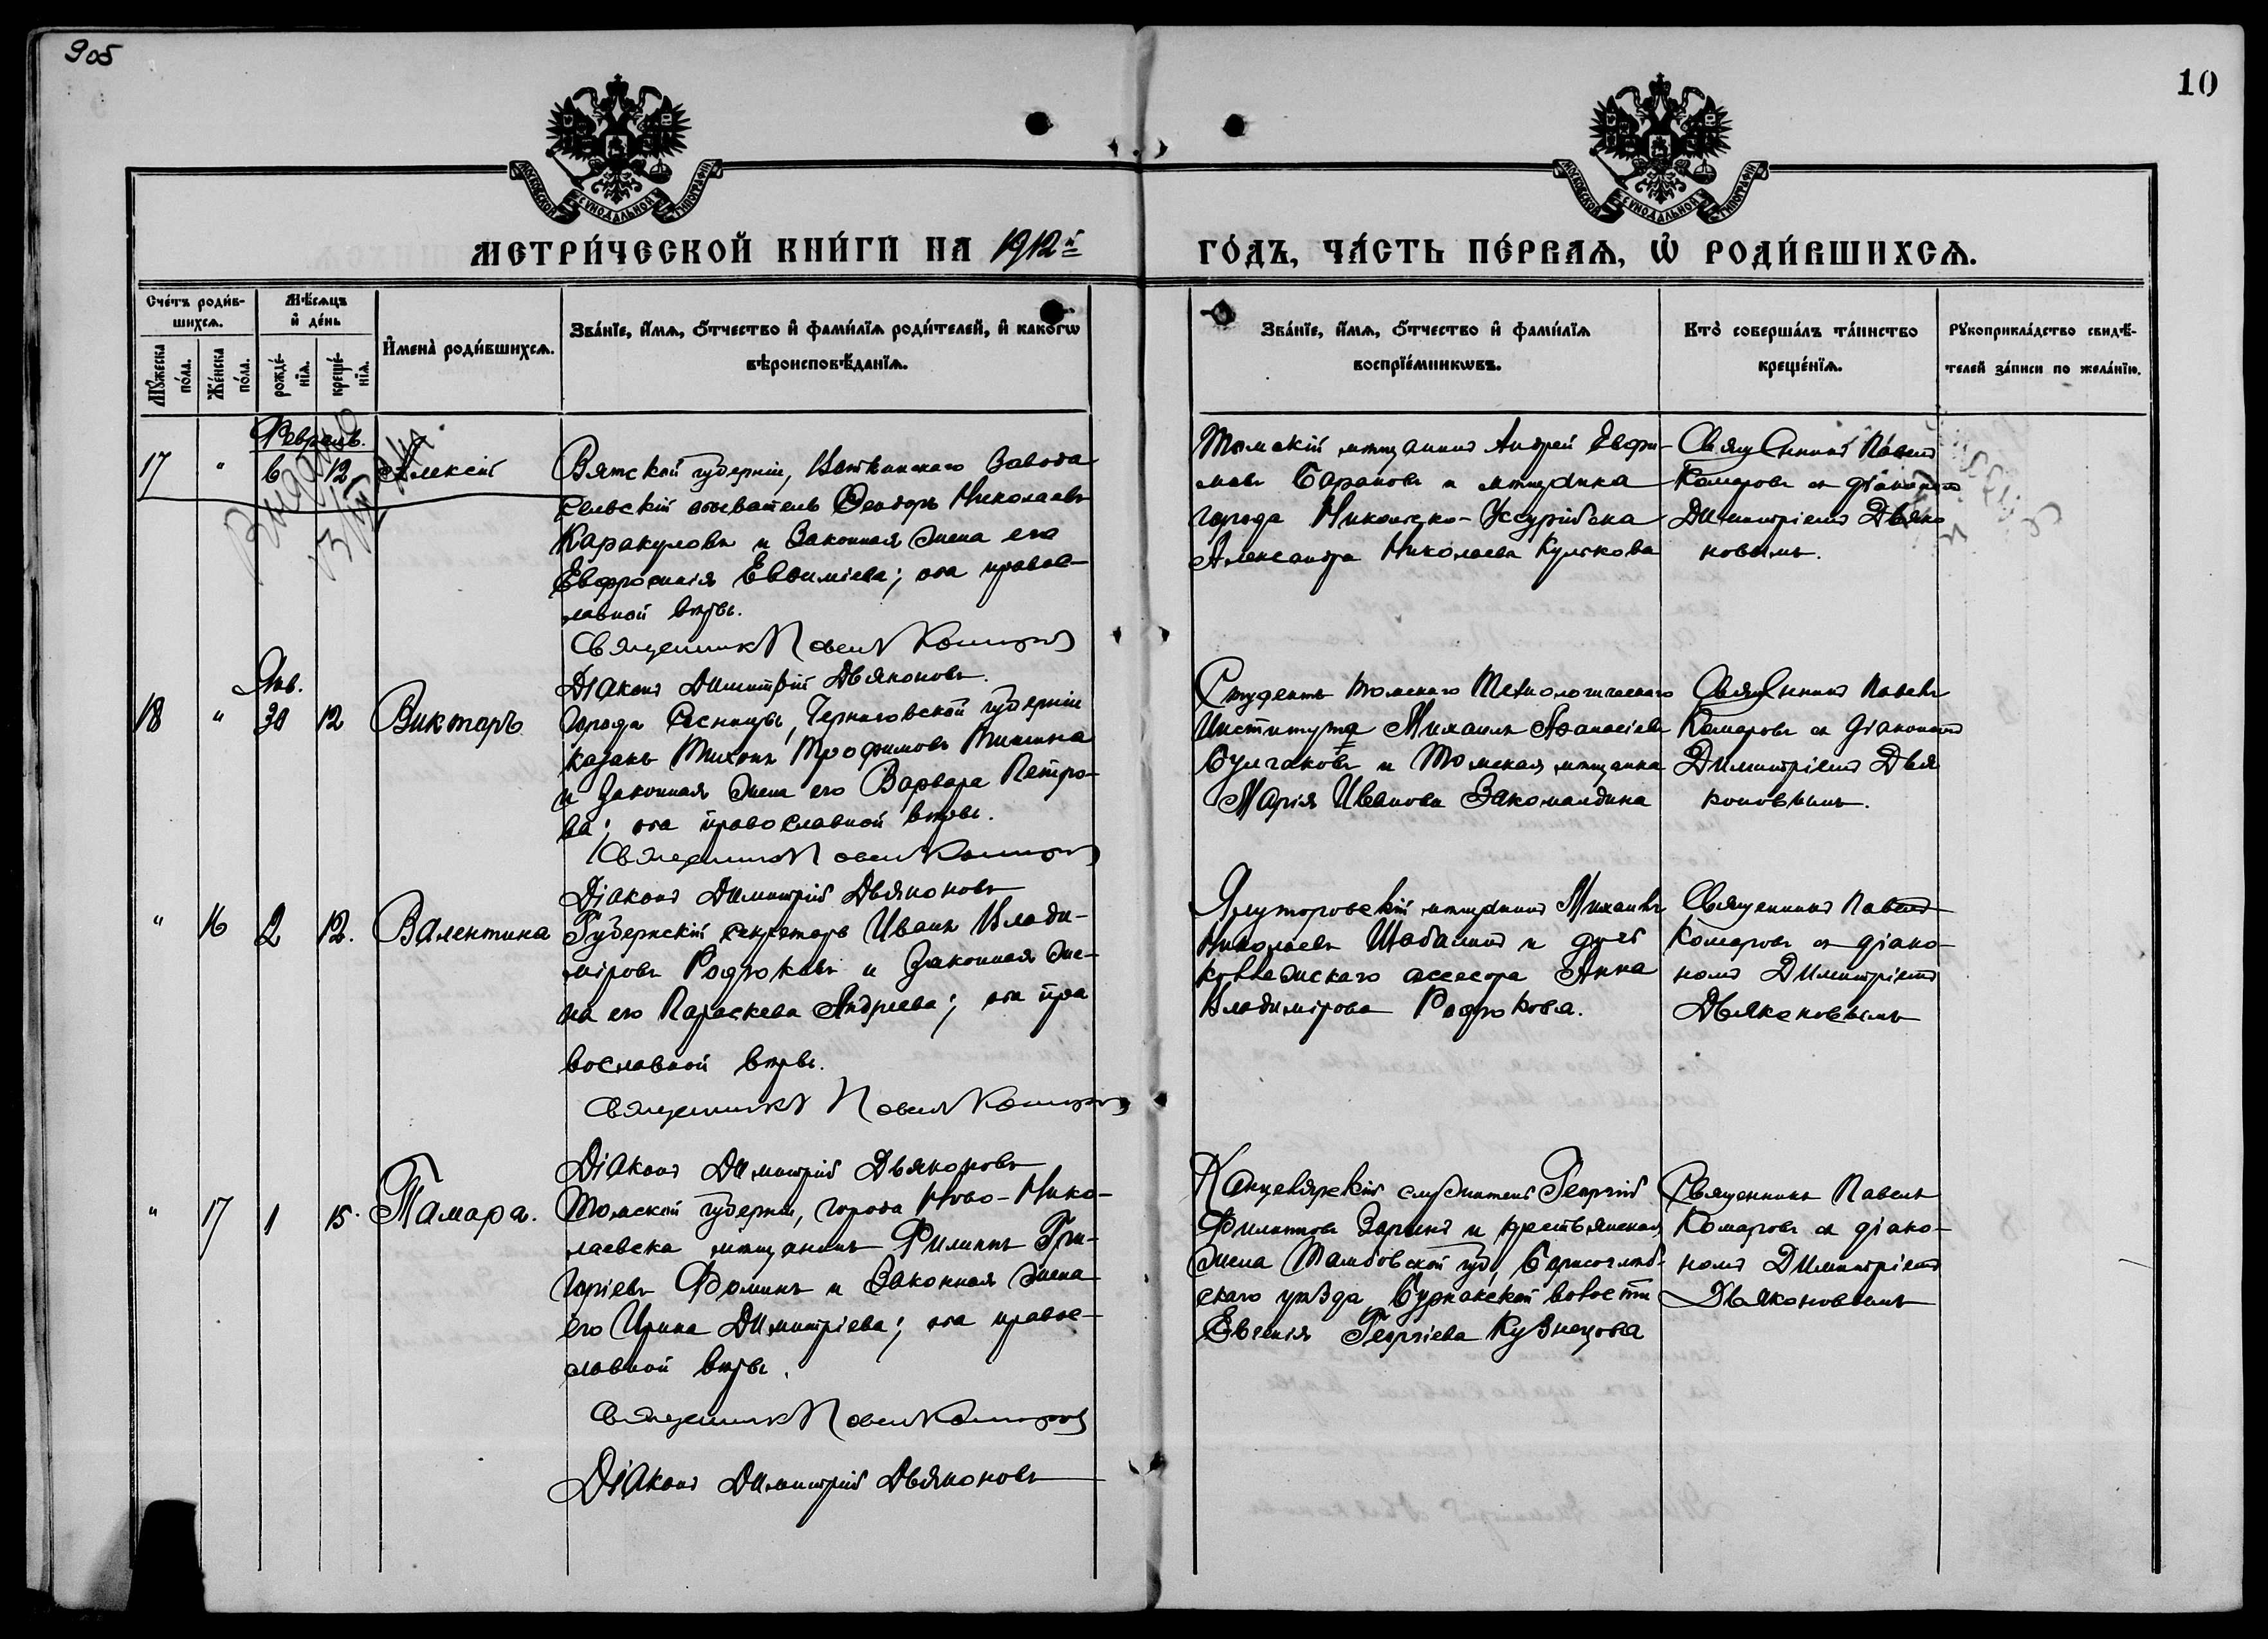 905
10
МОСКОВСКОЙ СУНОДАЛЬНОЙ ТИПОГРАФІИ
МОСКОВСКОЙ СУНОДАЛЬНОЙ ТИПОГРАФІИ
МЕТРИ́ЧЕСКОЙ КНИ́ГИ НА 1912й
ГО́ДЪ, ЧА́СТЬ ПЕ́РВАѦ, Ѡ҆ РОДИ́ВШИХСѦ.
Сче́тъ роди́в-
шихсѧ.
Мꙋ́жеска по́ла.
Же́нска по́ла.
Мѣ́сѧцъ
и҆ де́нь
рожде́-
нїѧ.
креще́-
нїѧ.
И҆мена̀ роди́вшихсѧ.
Зва́нїе, и҆́мѧ, ѻ҆́тчество и҆ фами́лїѧ роди́телей, и҆ како́гѡ
вѣроисповѣ́данїѧ.
Зва́нїе, и҆́мѧ, ѻ҆́тчество и҆ фами́лїѧ
воспрїе́мникѡвъ.
Кто̀ соверша́лъ та́инство
креще́нїѧ.
Рꙋкоприкла́дство свидѣ́-
телей за́писи по жела́нїю.
Февраль.
17 " 6 12 Алексій
Вятской губерніи, Воткинскаго Завода
сельскій обыватель Ѳеодоръ Николаевъ
Каракуловъ и законная жена его
Евфросинія Евѳиміева; оба правос-
лавной вѣры.
Священникъ Павелъ Комаровъ
Діаконъ Димитрій Дьяконовъ.
Томскій мѣщанинъ Андрей Ефи-
мовъ Барановъ и мѣщанка
города Никольско-Уссурійска
Александра Николаева Кулькова
Священникъ Павелъ
Комаровъ съ діакономъ
Димитріемъ Дьяко
новымъ.
Янв.
18 " 30 12 Викторъ
города Сосницы, Черниговской губерніи
казакъ Тихонъ Трофимовъ
и законная жена его Варвара Петро-
ва; оба православной вѣры.
Священникъ Павелъ Комаровъ
Діаконъ Димитрій Дьяконовъ
Студентъ Томскаго Технологическаго
Института Михаилъ Аѳанасіевъ
Булгаковъ и Томская мѣщанка
Марія Иванова Закомалдина
Священникъ Павелъ
Комаровъ съ діакономъ
Димитріемъ Дья
коновымъ.
" 16 2 12. Валентина
Губернскій секретарь Иванъ Влади-
міровъ Родюковъ и законная же-
на его Параскева Андреева; оба пра
вославной вѣры.
Священникъ Павелъ Комаровъ
Діаконъ Димитрій Дьяконовъ
Ялуторовскій мѣщанинъ Михаилъ
Николаевъ Шабалинъ и дочь
коллежскаго ассесора Анна
Владимірова Родюкова.
Священникъ Павелъ
Комаровъ съ діако-
номъ Димитріемъ
Дьяконовымъ
" 17 1 15. Тамара.
Томской губерніи, города Ново-Нико-
лаевска мѣщанинъ Филиппъ Гри-
горіевъ Фоминъ и законная жена
его Ирина Димитріева; оба правос-
лавной вѣры.
Священникъ Павелъ Комаровъ
Діаконъ Димитрій Дьяконовъ
Канцелярскій служитель Георгій
Филипповъ Заринъ и крестьянская
жена Тамбовской губ., Борисоглѣб-
скаго уѣзда Бурнакской волости
Евгенія Георгіева Кузнецова
Священникъ Павелъ
Комаровъ съ діако-
номъ Димитріемъ
Дьяконовымъ